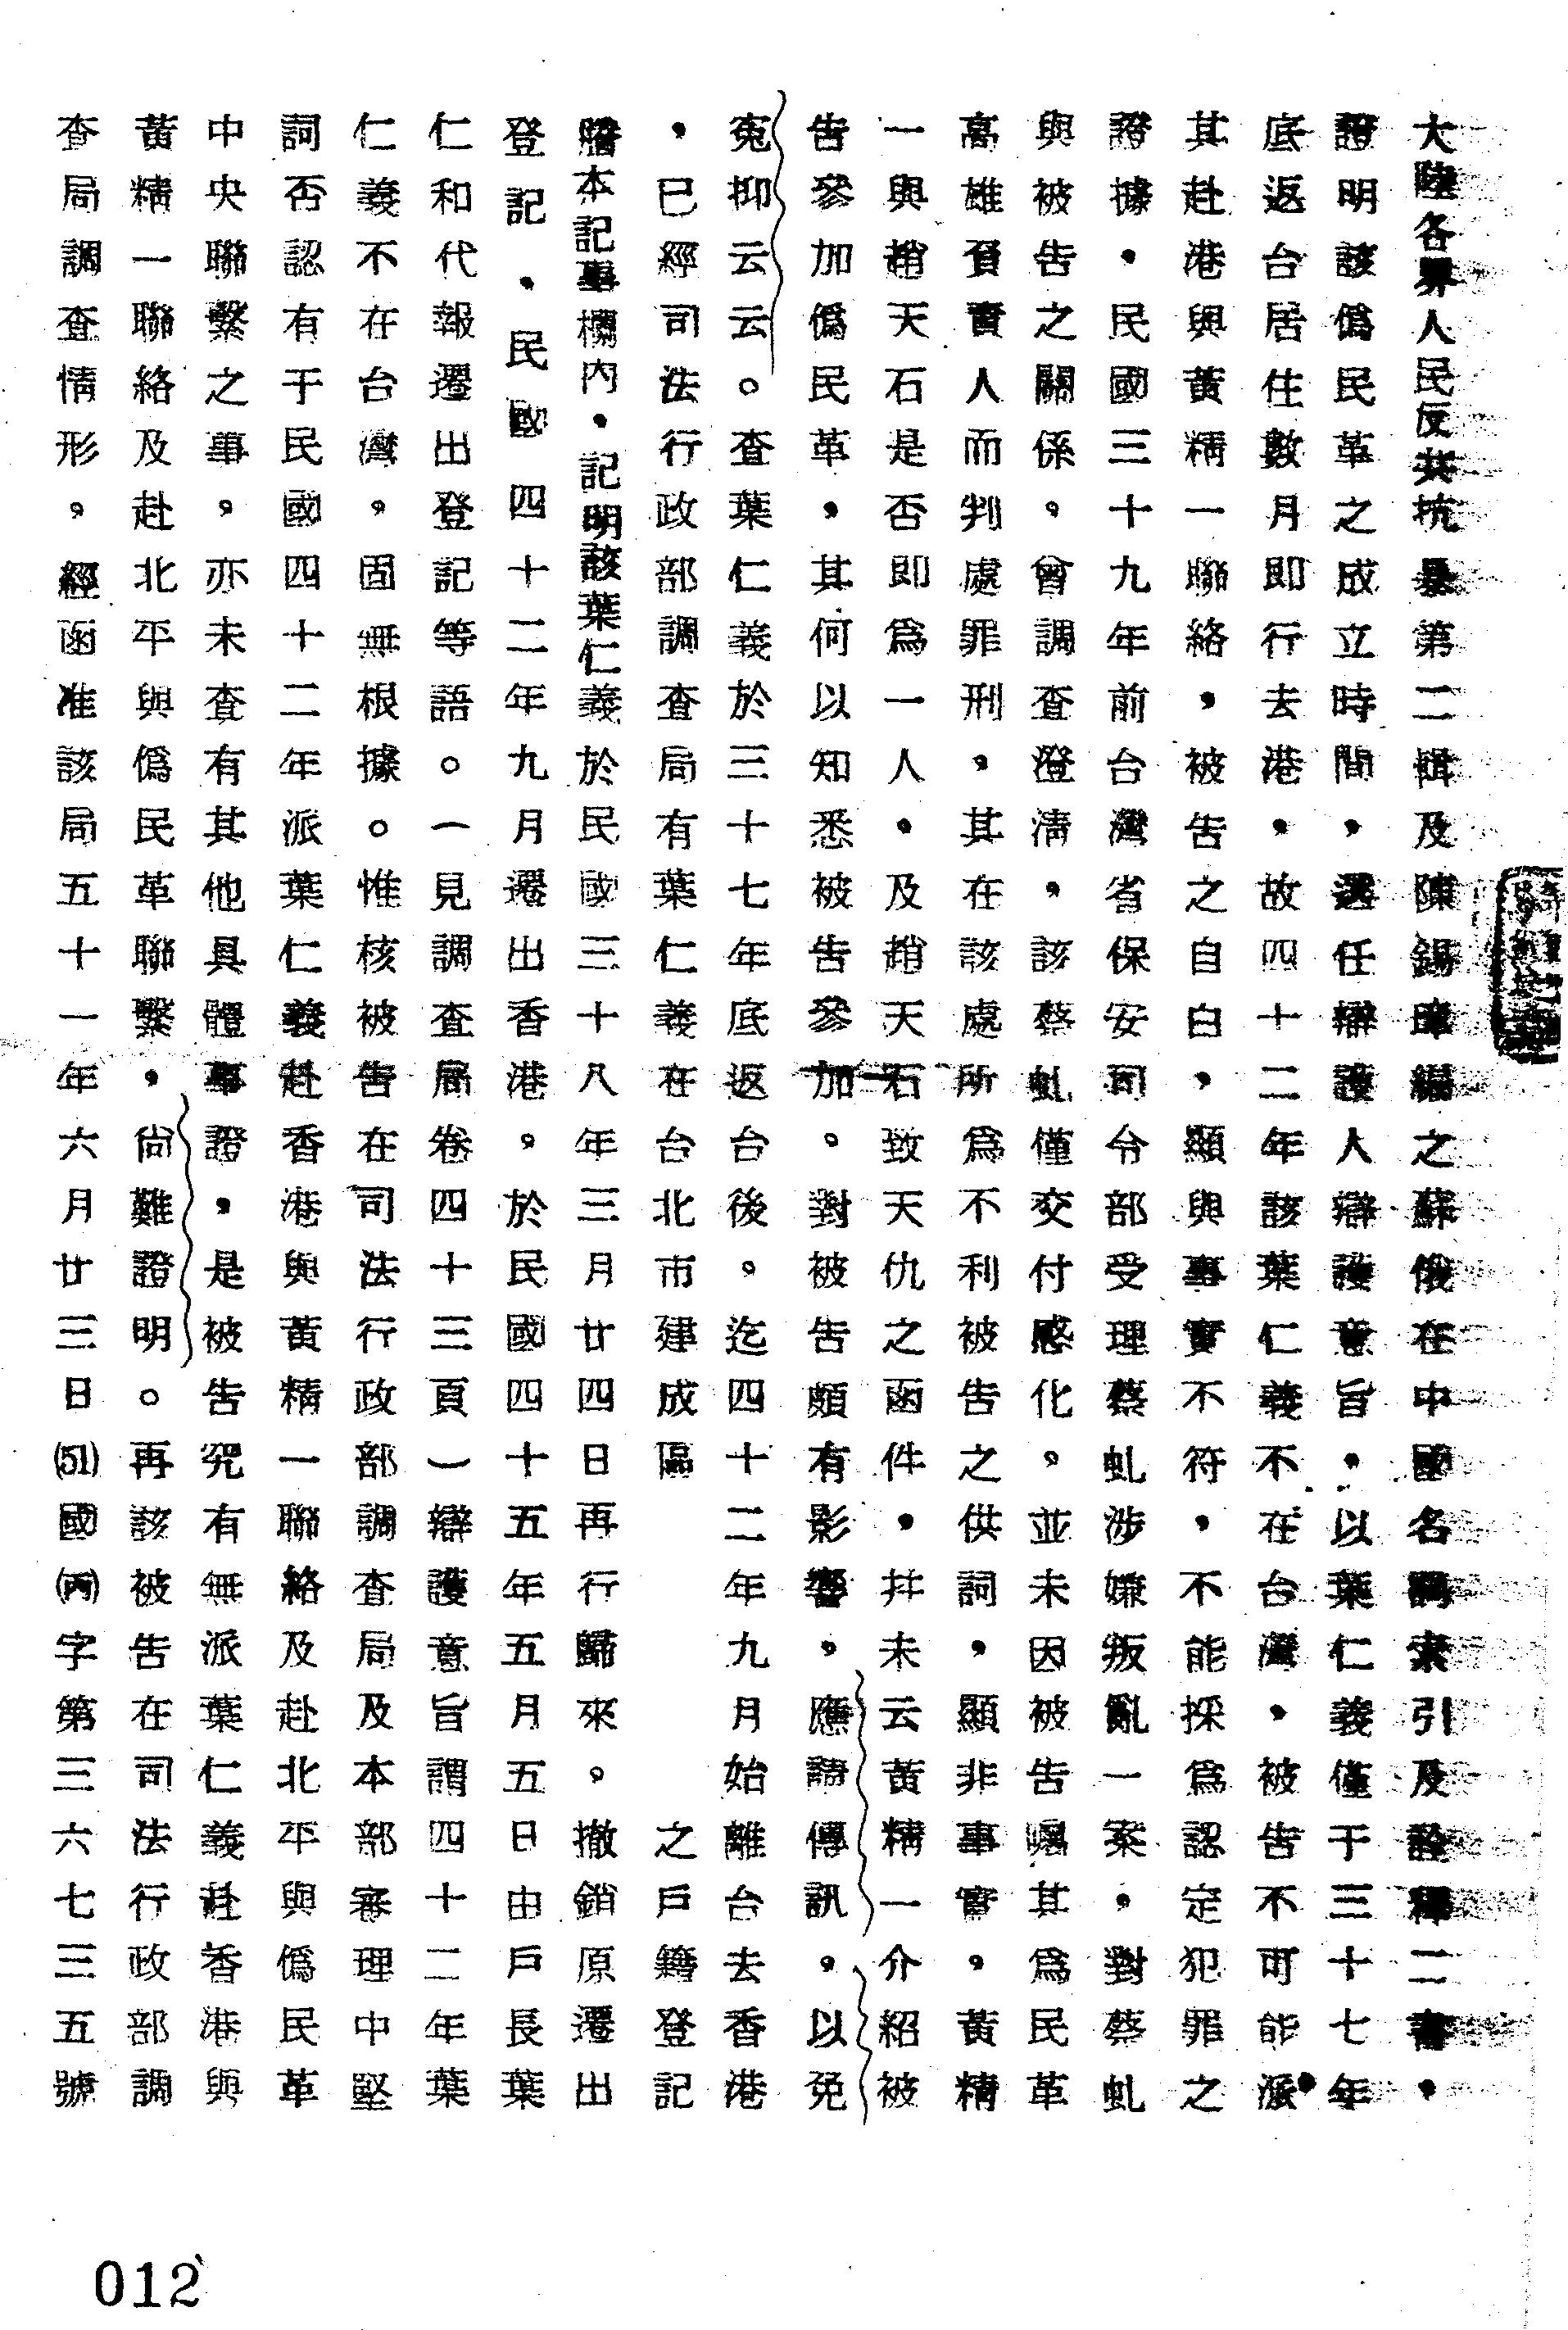 大陸各界人民反共抗暴第二輯及陳錫璋編之蘇俄在中國名詞索引及詮釋二書，
證明該偽民革之成立時間，選任辯護人辯護意旨，以葉仁義僅于三十七年
底返台居住數月即行去港，故四十二年該葉仁義不在台灣，被告不可能派
其赴港與黃精一聯絡，被告之自白，顯與事實不符，不能採為認定犯罪之
證據，民國三十九年前台灣省保安司令部受理蔡虬涉嫌叛亂一案，對蔡虬
與被告之關係。曾調查澄清，該蔡虬僅交付感化，並未因被告囑其為民革
高雄負責人而判處罪刑，其在該處所為不利被告之供詞，顯非事實。黃精
一與趙天石是否即為一人，及趙天石致天仇之函件，並未云黃精一介紹被
告參加偽民革，其何以知悉被告參加。對被告頗有影響，應請傳訊。以免
冤抑云云。查葉仁義於三十七年底返台後。迄四十二年九月始離台去香港
，已經司法行政部調查局有葉仁義在台北市建成區之戶籍登記
謄本記事欄內，記明該葉仁義於民國三十八年三月廿四日再行歸來。撤銷原遷出
登記，民國四十二年九月遷出香港，於民國四十五年五月五日由戶長葉
仁和代報遷出登記等語。一見調查局卷四十三頁）辯護意旨謂四十二年葉
仁義不在台灣，固無根據。惟核被告在司法行政部調查局及本部審理中堅
詞否認有于民國四十二年派葉仁義赴香港與黃精一聯絡及赴北平與偽民革
中央聯繫之事，亦未查有其他具體事證，是被告究有無派葉仁義赴香港與
黃精一聯絡及赴北平與偽民革聯繫，尚難證明。再該被告在司法行政部調
查局調查情形，經函准該局五十一年六月廿三日(51)國(丙)字第三六七三五號
012